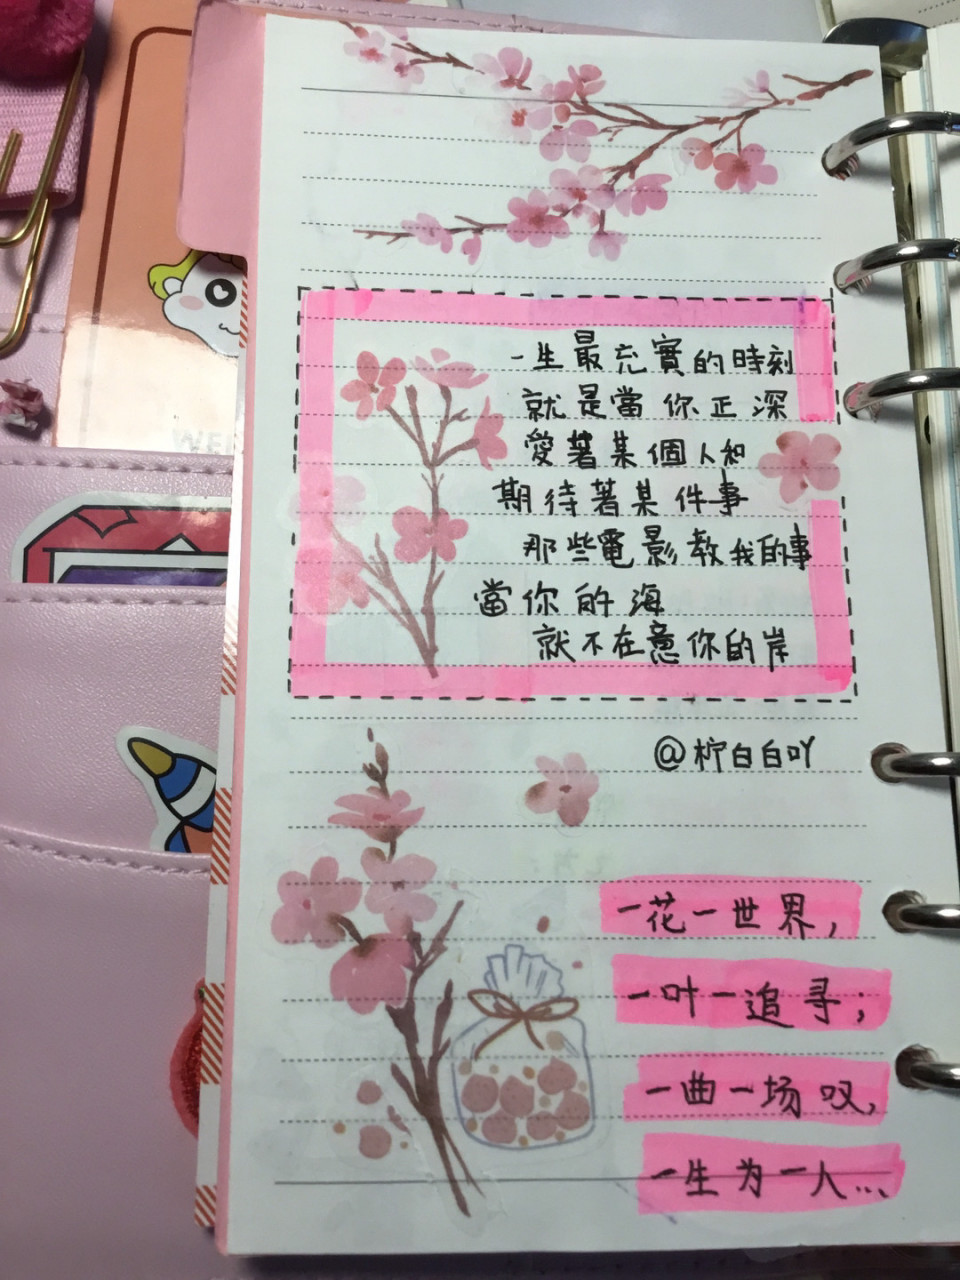 一生最充實的時刻
就是當你正深
愛著某個人和
期待著某件事
那些電影教我的事
當你的海
就不在意你的岸
@柠白白吖
一花一世界，
一叶一追寻；
一曲一场叹，
一生为一人...